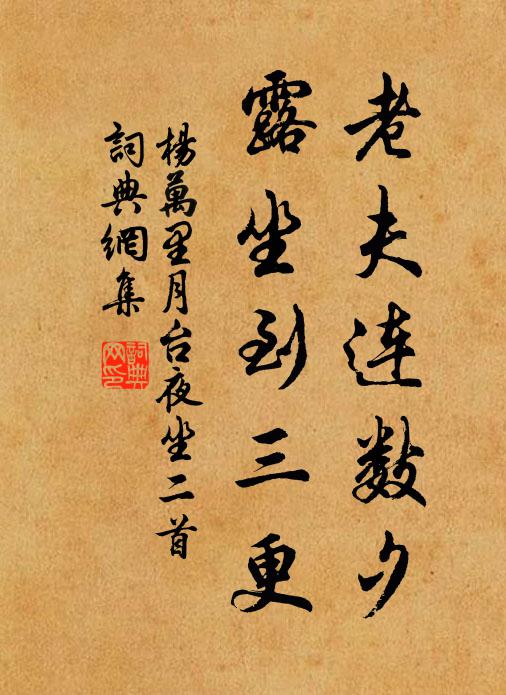 老夫连数夕
露坐到三更
楊萬里月台夜坐二首
詞典網集
詞典网印